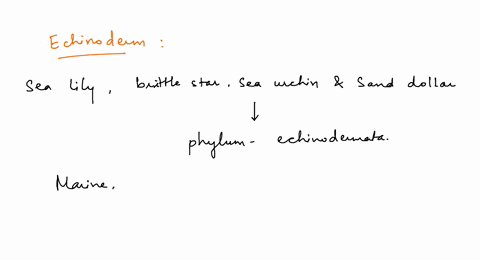 Echinoderm :
Sea lily, brittle star, Sea urchin & Sand dollar
↓
phylum - echinodermata.
Marine,